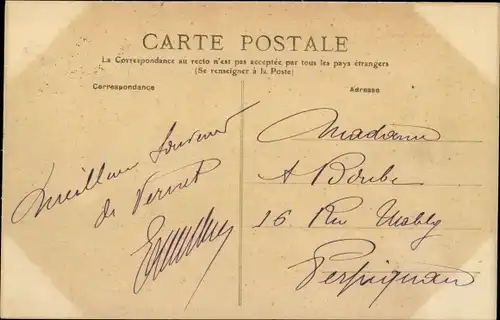 CARTE POSTALE
La Correspondance au recto n'est pas acceptée par tous les pays étrangers
(Se renseigner à la Poste)
Correspondance
Adresse
Meilleur Souvenir
de Vernet
Madame
A
16 Rue Mably
Perpignan